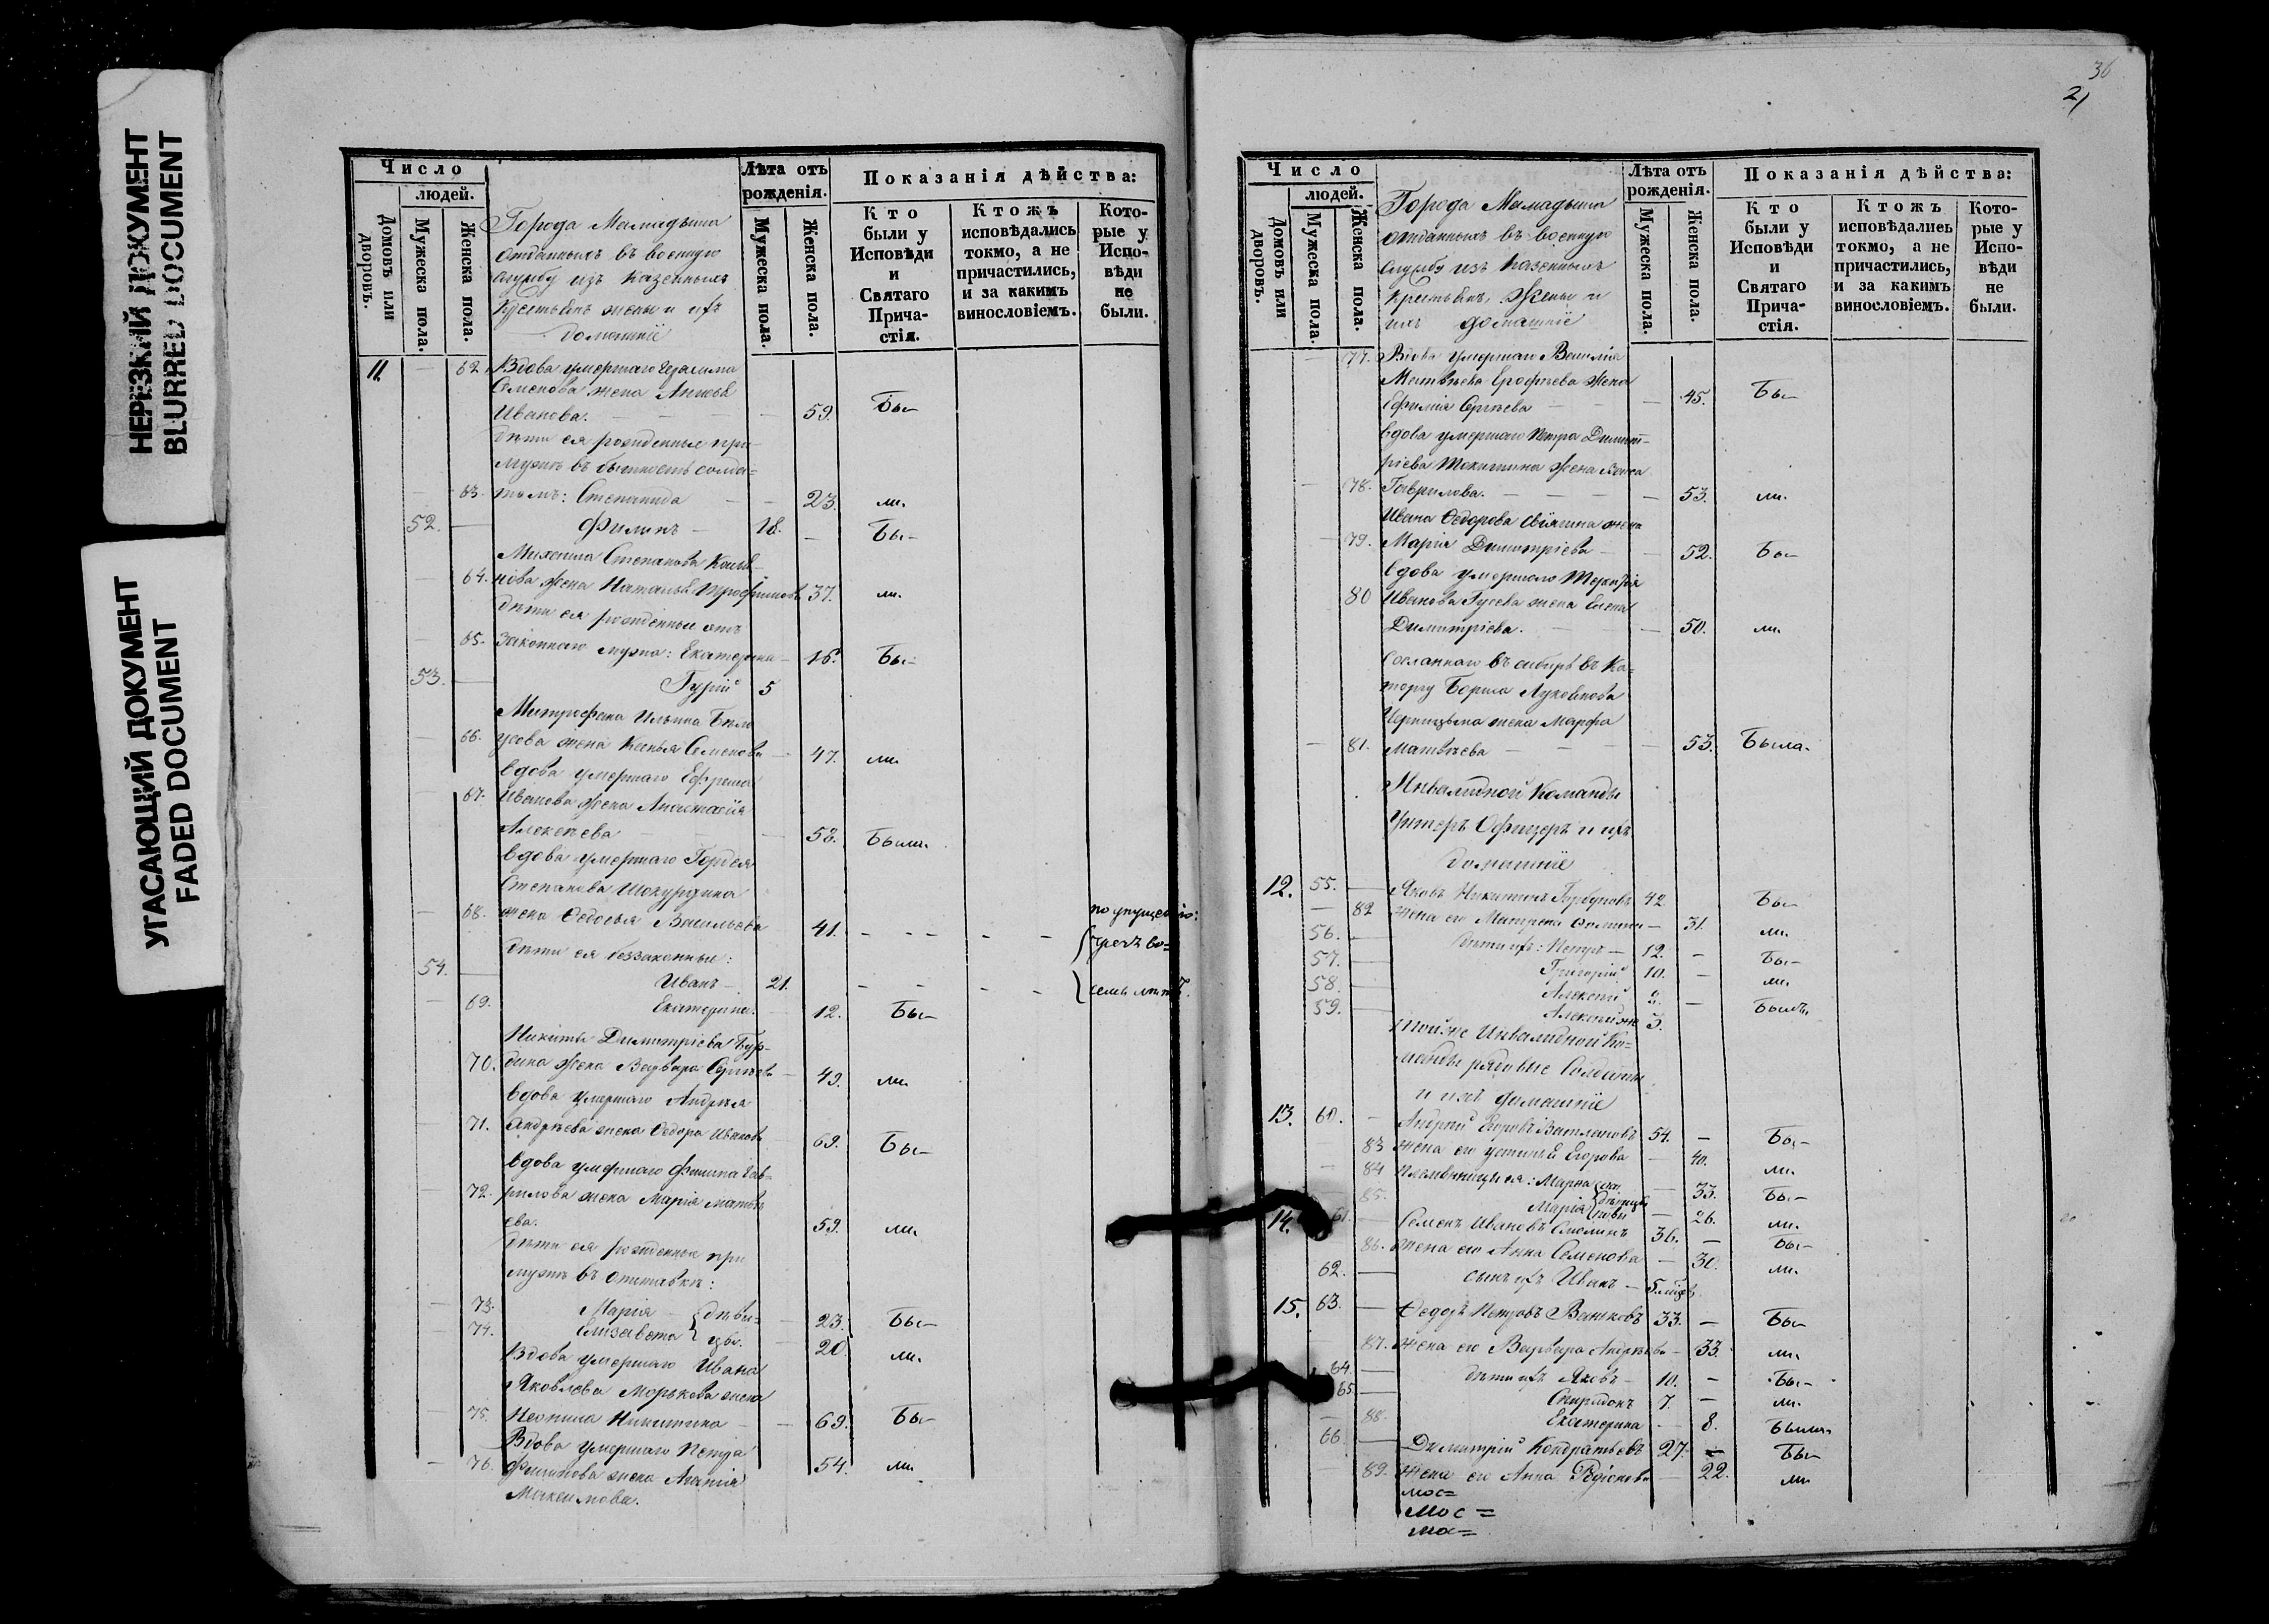 НЕРЕЗКИЙ ДОКУМЕНТ
BLURRED DOCUMENT
УГАСАЮЩИЙ ДОКУМЕНТ
FADED DOCUMENT
Число
людей.
Домовъ или дворовъ.
Мужеска пола.
Женска пола.
Города Мамадыша
отданныхъ въ военную
службу изъ казенныхъ
крестьянъ жены и ихъ
домашніе
Лѣта отъ рожденія.
Мужеска пола.
Женска пола.
Показанія дѣйства:
Кто были у Исповѣди и Святаго Прича-стія.
Ктожъ исповѣдались токмо, а не причастились, и за какимъ винословіемъ.
Кото-рые у Испо-вѣди не были.
11. — 62. Вдова умершаго Герасима
Семенова жена
Иванова. — 59. Бы-
дѣти ея рожденные при
мужѣ въ бытность солда=
63. томъ: Степанида — 23. ли.
52. — Филипъ — 18. — Бы-
Михаила Степанова
64. жена Наталья Трофимова 37. ли.
дѣти ея рожденные отъ
65. законнаго мужа: Екатерина — 16. Бы-
53. — Гурій 5
Митрофана Ильина Бѣло
66. усова жена Ксенья Семенова — 47. ли.
вдова умершаго Ефрема
67. Иванова жена Анастасія
Алексѣева — 58. Была.
вдова умершаго Гордея
Степанова
68. жена Ѳедосья Васильева 41. - - - - -
по упущенію:
чрезъ во=
дѣти ея беззаконные:
54. — Иванъ — 21. - - - -
семь лѣтъ.
69. Екатерина. 12. Бы-
Никиты Димитріева Бур-
70. дина жена Варвара Сергѣева — 49. ли.
вдова умершаго Андрея
71. Андреева жена Ѳедора Иванова 69. Бы-
вдова умершаго Филипа Гав-
72. рилова жена Марія Матвѣ
ева. 59. ли.
дѣти ея рожденные при
мужѣ въ отставкѣ:
73. Марія — дѣви= — 23. Бы-
74. Елизавета цы. — 20. ли.
Вдова умершаго Ивана
Яковлева Морькова жена
75. Неонила Никитина — 69. Бы-
Вдова умершаго Петра
76. Филипова жена Агапія 54. ли.
Максимова.
36
21
Число
людей.
Домовъ или дворовъ.
Мужеска пола.
Женска пола.
Города Мамадыша
отданныхъ въ военную
службу изъ казенныхъ
крестьянъ, жены и
ихъ домашніе
Лѣта отъ рожденія.
Мужеска пола.
Женска пола.
Показанія дѣйства:
Кто были у Исповѣди и Святаго Прича-стія.
Ктожъ исповѣдались токмо, а не причастились, и за какимъ винословіемъ.
Кото-рые у Испо-вѣди не были.
— 77. Вдова умершаго Василія
Матвѣева Ерофѣева жена
Ефимія Сергѣева — 45. Бы-
вдова умершаго Петра Димит-
ріева жена
— 78. Гаврилова. — 53. ли.
Ивана Ѳедорова жена
— 79. Марія Димитріева — 52. Бы-
вдова умершаго
80 Иванова Гусева жена Елена
Димитріева. — 50. ли.
Сосланнаго въ сибирь въ ка=
торгу Бориса
жена Марфа
— 81. Матвѣева — 53. Была.
Инвалидной Команды
Унтеръ Офицеръ и ихъ
домашніе
12. 55. — Яковъ Никитинъ Горбуновъ 42. Бы-
— 82 жена его Матрена — 31. ли.
56. — дѣти ихъ: Петръ — 12. — Бы-
57. — Григорій 10. — ли.
58. — Алексѣй 9. — Былъ.
59. — Алексѣй же 3.
тойже Инвалидной Ко=
манды рядовые Солдаты
и ихъ домашніе
13. 60. — Андрей Егоровъ 54. — Бы-
83 жена его Устинья Егорова — 40. ли.
— 84 племянницы ея: Марѳа — 33. Бы-
— 85. Марія — 26. ли.
14. 61. — Семенъ Ивановъ 36. — Бы-
86. жена его Анна Семенова — 30. ли.
62. — сынъ ихъ Иванъ — 5.
15. 63. — Ѳедоръ Петровъ 33. — Бы-
87. жена его Варвара Андрѣева — 33. ли.
64. — дѣти ихъ Яковъ — 10. — Бы-
65. — Спиридонъ 7. — ли.
— 88. Екатерина — 8. Была.
66. — Димитрій Кондратьевъ 27. — Бы-
89. жена его Анна Родіонова — 22. ли
мос=
Мос=